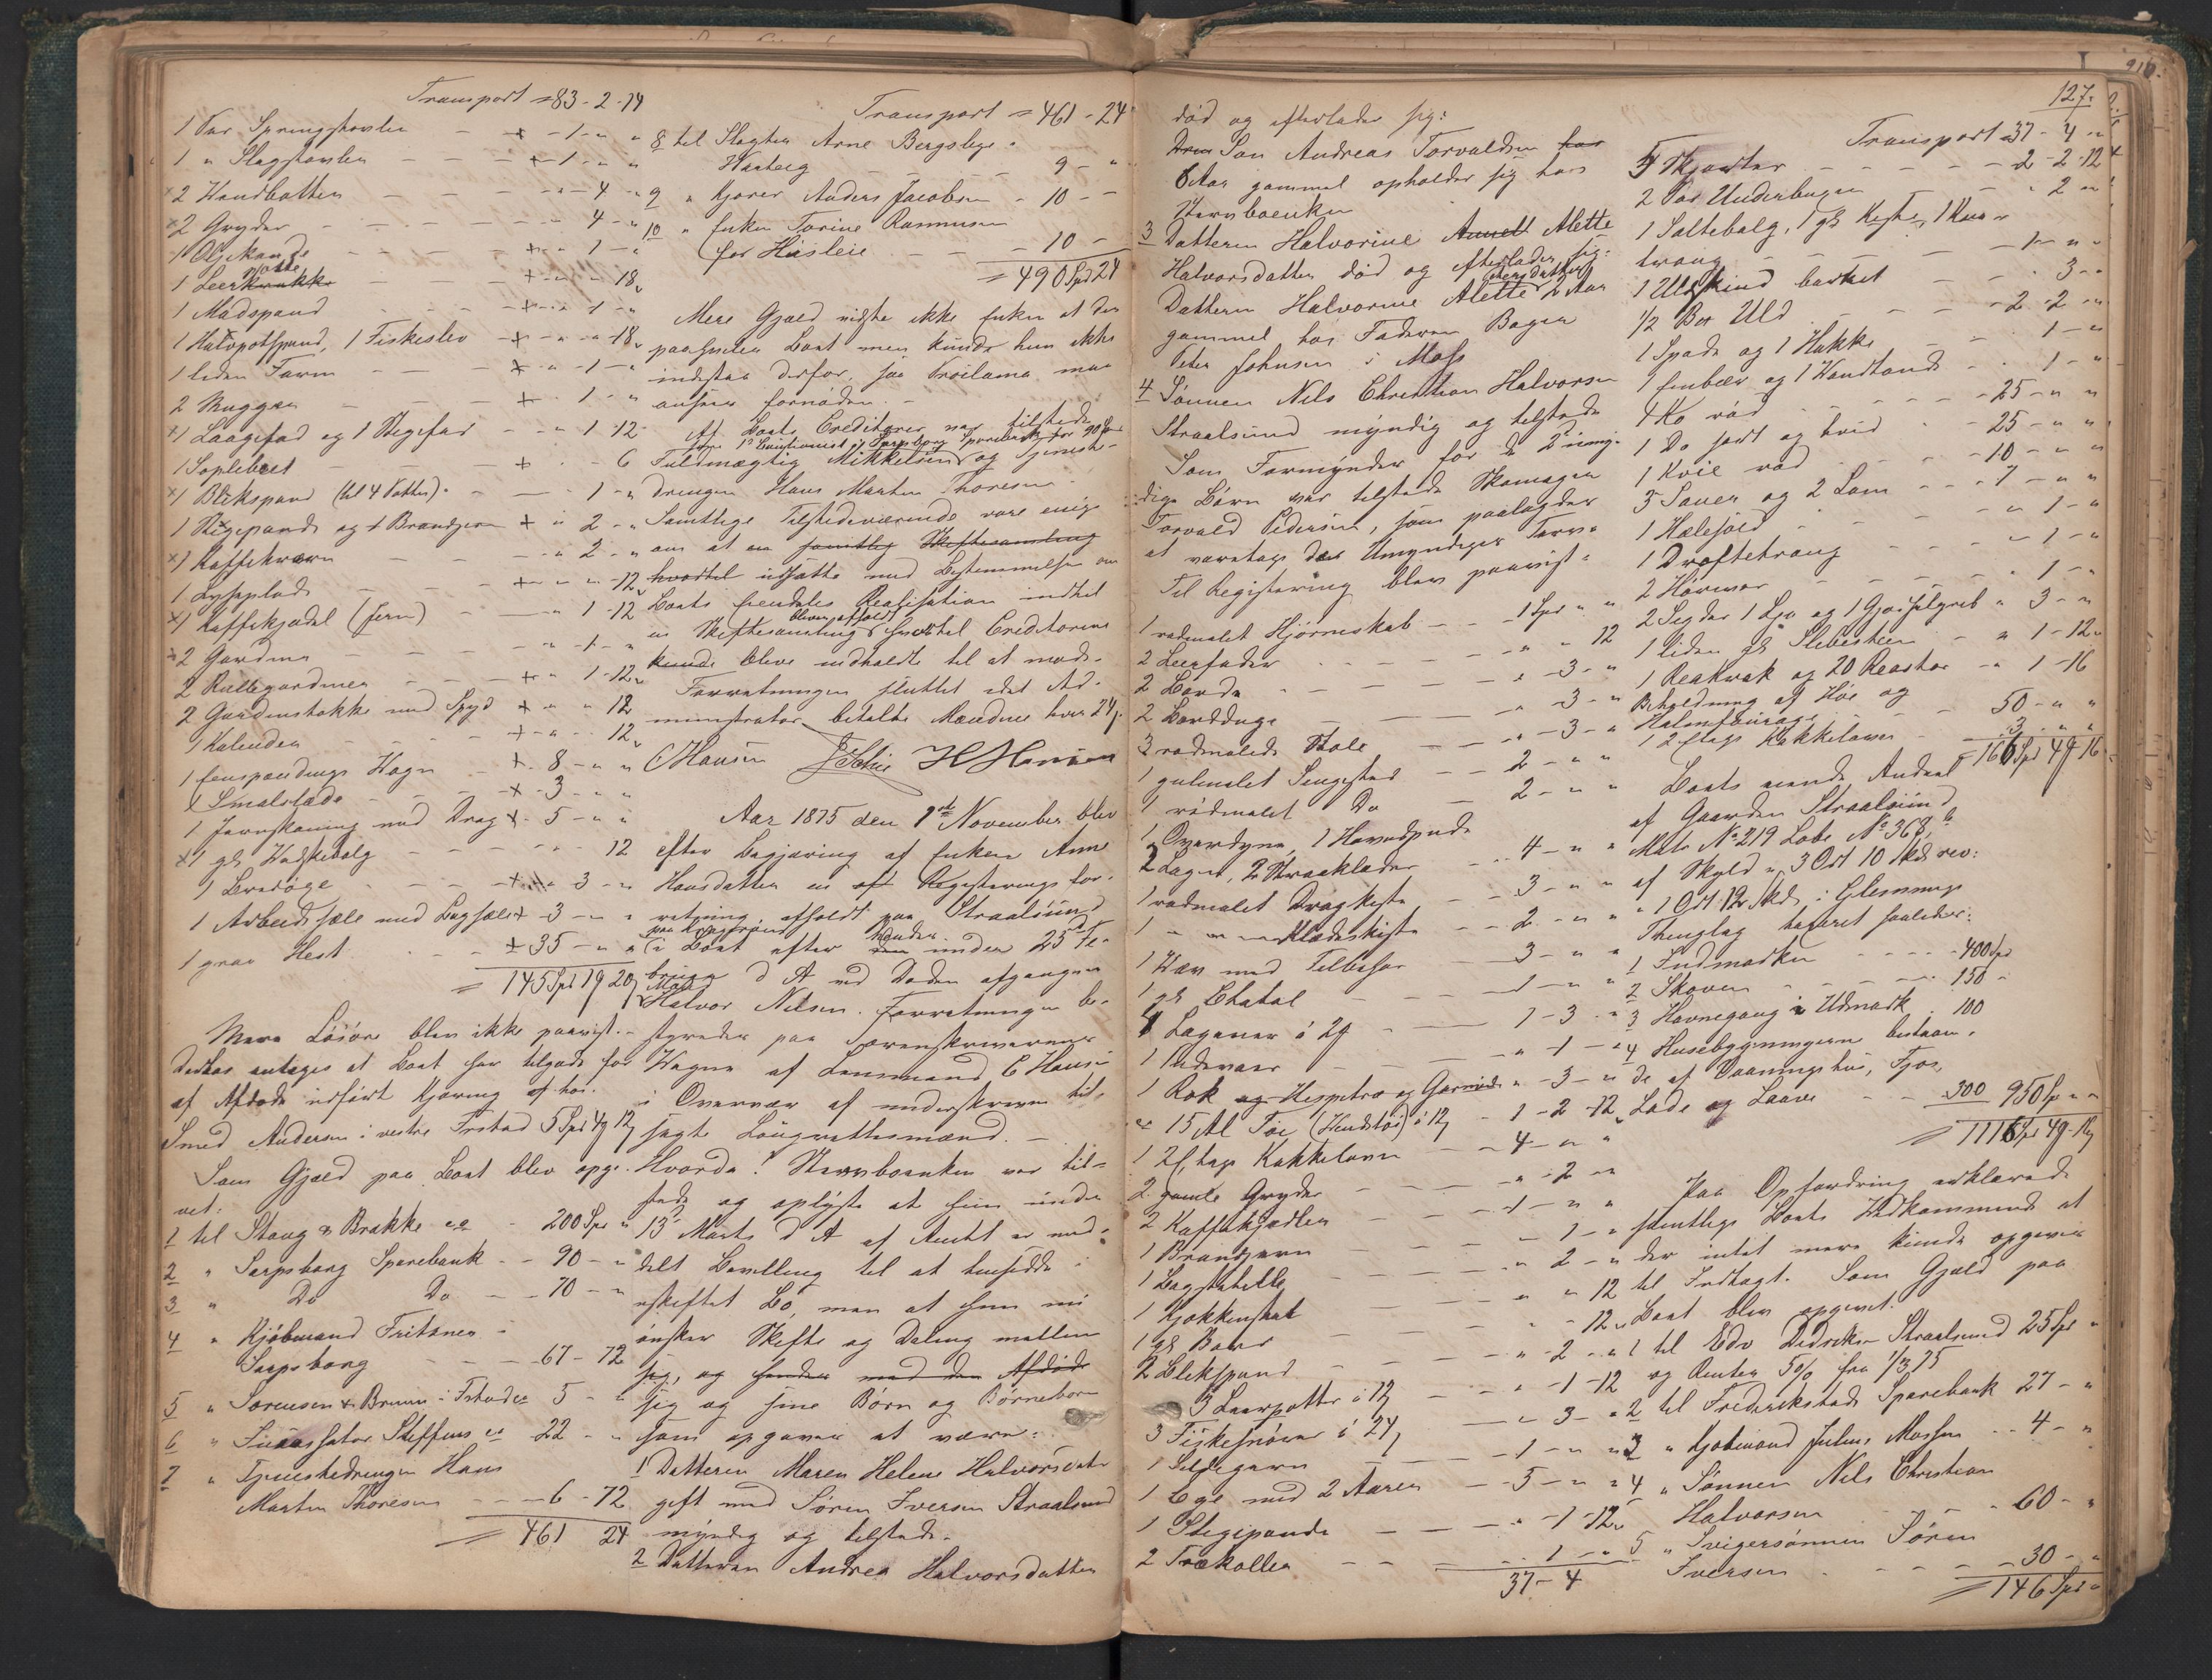 Transport = 83 - 2 - 14
1 Par Springstøvler - + - 1 - " "
1 " Slagstøvler - - - + - 1 - " "
×2 Vandbøtter - - - " - 4 - "
×2 Gryder - - - " - 4 - "
1 Oljekande - - + " 1 - "
1 Leerkrukke potte - - + - " - 18
1 Madspand - - + - " 1 - "
1 Halvpotspand, 1 Fiskeslev - + - " - 18
1 liden Form - - + " - 1 - "
2 Muggen - - + " 1 - "
×1 Laagefad og 1 Stegefad - - " 1 - 12
1 Soplebret - - + " - 6
×1 Blikspand (til 4 Potter) - - 1 - "
1 Stegepande og 1 Brandjern + " 2 - "
×1 Kaffekværn - - " 2 - "
1 Lyseplade - + - " - 12
×1 Kaffekjedel (jern) - " 1 - 12
×2 Gardiner - - " - 1 - "
2 Rullegardiner - - + " 1 - 12
2 Gardinstokke med Spyd + " " 12
1 Kalender - - + - " 12
1 Enspændings Vogn + 8 - " "
1 Smalslæde - - + - 3 - " "
1 Jernskoning med Drag + - 5 - " "
×1 gl Vadskebalg - - " - 12
1 Bredøxe - - + " 3 - "
1 Arbeidssele med Bugsele + - 3 - " "
1 graa Hest - - + 35 - " "
= 145 Spd 1 20
Mere Løsøre blev ikke paavist. -
Derhos antages at Boet har tilgode for
af Afdøde udført Kjøring af hos
Smed Andersen i vestre Frstad 5 Spd 4 12
Som Gjæld paa Boet blev opgi-
vet:
1 til Stang & Brække - 200 Spd "
2 " Sarpsborg Sparebank - - 90 - "
3 " Do Do - - 70 - "
4 " Kjøbmand Fritzner -
Sarpsborg - - - 67 - 72
5 " Sorensen & Bruun i Frstad 5 - "
6 " Steffens 22 - "
7 " Tjenestedrengen Hans
Martin Thoresen - - 6 - 72
= 461 24
Transport = 461 - 24
8 til Slagter Arne Bergslie
9 - "
9 " Kjører Anders Jacobsen - 10 - -
10 " Enken Torine Rasmussen
for Husleie - - 10 -
= 490 Spd 24
Mere Gjæld vidste ikke Enken at der
paahviler Boet men kunde hun ikke
indestaa derfor, saa Proclama maa
ansees fornøden. -
Af Boets Creditorer var tilstede
for 1 Cautionist Sarpsborg Sparebank for 90 Spd
Fuldmægtig Mikkelsen og Tjeneste-
drengen Hans Martin Thoresen.
Samtlige Tilstedeværende vare enige
om at en samtlig Skiftesamling
hvortil udsatte med Bestemmelse om
Boets fremdeles Realisation indtil
en Skiftesamling bliver afholdt hvortil Creditorerne
kunde blive indkaldte til at møde.
Forretningen sluttet idet Ad-
ministrator betalte Mændene hver 24
C Hansen J Schie H Hansen
Aar 1875 den 1st November blev
efter Begjæring af Enken Anne
Hansdatter en aft Registrerings for-
retning afholdt paa Straalsund
i Boet efter hendes den under 23de Fe-
bruar d A ved Døden afgangne
Mand Halvor Nilsen. Forretningen be-
styredes paa Sorenskriverens
Vegne af Lensmand C Hansen
i Overvær af underskrevne til-
sagte Laugrettesmænd. -
Hvorda! Stervboenken var til-
stede og oplyste at hun under
13de Marts d A af Amtet er med-
delt Bevilling til at hensidde i
uskiftet Bo, men at hun nu
ønsker Skifte og Deling mellem
sig, og hendes med den Afdøde
sig og sine Børn og Børnebørn
som opgaves at være:
1 Datteren Maren Helene Halvorsdatter
gift med Søren Iversen Straalsund
myndig og tilstede.
2 Datteren Andrea Halvorsdatter
127.
død og efterlader sig:
Søn Andreas Torvaldsen hos
6 Aar gammel opholder sig hos
Stervboenken
3 Datteren Halvorine Annett Alette
Halvorsdatter død og efterlader sig:
Datteren Halvorine Alette Petersdatter 2 Aar
gammel hos Faderen Bager
Peter Johnsen i Moss
4 Sønnen Nils Christian Halvorsen
Straalsund myndig og tilstede
Som Formynder for de 2de umyn-
dige Børn var tilstede Skomager
Torvald Pedersen, som paalagdes
at varetage des Umyndiges Tarv.
Til Registrering blev paavist:
1 rødmalet Hjørneskab - - 1 Spd " "
2 Leerfader - - - " - 12
2 Borde - - - " - 3 - "
2 Bordduge - - " - 3 - "
3 rødmalede Stole - - " - 3 - "
1 gulmalet Sengested - - 2 - " "
1 rødmalet Do - 2 - " "
1 Overdyne, 1 Hovedpude
2 Lagen, 2 Straaklæder - - 4 - " "
1 rødmalet Dragkiste - - 3 - " "
1 " " Klædeskiste - - 2 - " "
1 Væv med Tilbehør - - 3 - " "
1 gl Chatol - - - 1 - " "
4 Lagener á 24 - - 1 - 3 "
1 Pudevaar - - - " - 1 - "
1 Rok og Hespetræ og Garnvinde " - 3 - "
15 Al Tøi (Hendstøi) á 12 - 1 - 2 - 12
1 2 Etages Kakkelovn - - 4 - " "
2 gamle Gryder - - " - 2 - "
2 Kaffekjedler - - - 1 - " "
1 Brandjern - - - " 1 - "
1 Bagstehelle - - - " 2 - "
1 Kjøkkenskab - - - " " 12
1 gl Baar - - - " - 12
2 Blikspand - - - " - 2 - "
3 Leerpotter á 12 - - " - 1 - 12
3 Fiskesnører á 24 - - " 3 - "
1 Sildegarn - - - 1 - " "
1 Ege med 2 Aarer - - 5 - " "
1 Stegepande - - - " - 1 - 12
2 Trækoller - - - 1 - "
37 - 4
Transport = 37 - 4 - "
5 Skjorter - - - - 2 - 2 - 12
2 Par Underbuxer - " 2 "
1 Saltebalg, 1 gl Kiste, 1 Kar
traug - - - 1 - " "
1 Uldskind barket - " 3 - "
1/2 Bog Uld - - 2 - 2 - "
1 Spade og 1 Hakke - - 1 - "
1 Embær og 1 Vandtønde - 1 - "
1 Ko rød - - - 25 - " "
1 Do sort og hvid - - 25 - " "
1 Kvie rød - - - 10 - " "
5 Sauer og 2 Lam - - - 7 - " "
1 Høleføed - - - " 1 - "
1 Drøftetraug - - - " 1 - "
2 Hørivar - - - " 1 - "
2 Segder 1 Lja og 1 Gjødselgreb " 3 - "
1 liden gl Slibesteen - - " 1 - 12
1 Reakrak og 20 Reastør - " 1 - 16
Beholdning af Høe og
Halmfourage - - 50 - " "
1 2 Etage Kakkelovn - - 3 " "
166 Spd 4 - 16
Boets eiende Andeel
af Gaarden Straalsund
Mats No 219 Løbe No 368, a
af Skyld " 3 Ort 10 skd rev:
" 1 Ort 12 skd i Glemminge
Thinglag taxeret saaledes:
1 Indmarken - - - 400 Spd
2 Skoven - - - 150 -
3 Havnegang i Udmark - 100
4 Husebygningern bestaaen-
de af Vaaningshus, Fjøs,
Lade og Laave - - 300 950 Sp " "
= 1116 Spd 4 - 16
Paa Opfordring erklærede
samtlige Boets Vedkommende at
der intet mere kunde opgives
til Indtægt. Som Gjæld paa
Boet blev opgivet:
1 til Edv Didriksen Straalsund 25 Spd "
og Renter 5% fra 1/3 75
2 til Frederikstad Sparebank 27 - "
3 " Kjøbmand Julius Mossen - - 4 - "
4 " Sønnen Nils Christian
Halvorsen - - - 60 - "
5 " Svigersønnen Søren
Iversen - - - 30 - "
= 146 Spd "